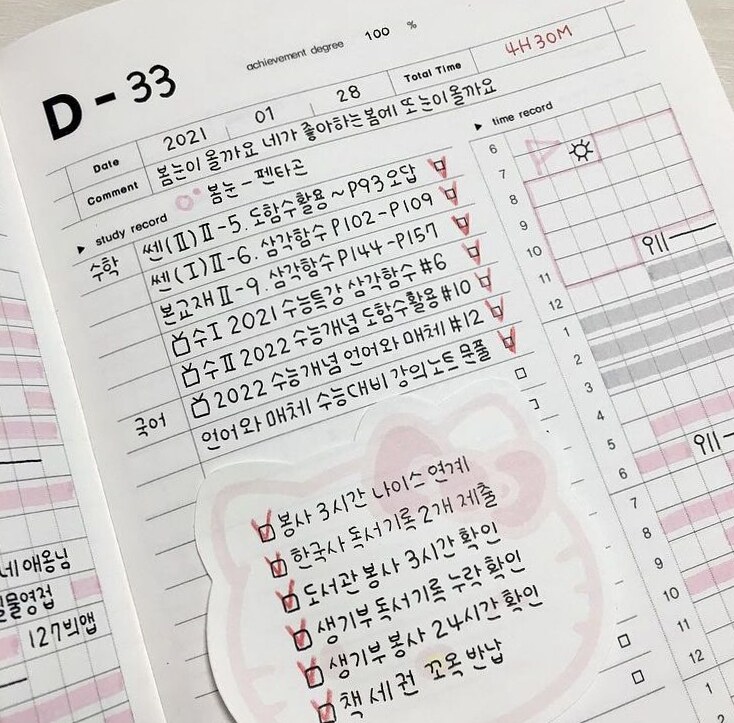 D-33
achievement degree 100 %
Date 2021 01 28 Total Time 4H 30M
Comment 봄눈이 올까요 네가 좋아하는 봄에 또 눈이 올까요
봄눈 - 펜타곤
▶ study record
▶ time record
수학 쎈(Ⅱ)Ⅱ-5. 도함수활용 ~ P93 오답
쎈(Ⅰ)Ⅱ-6. 삼각함수 P102-P109
본교재 Ⅱ-9. 삼각함수 P144-P157
수Ⅰ 2021 수능특강 삼각함수 #6
수Ⅱ 2022 수능개념 도함수활용 #10
2022 수능개념 언어와 매체 #12
국어 언어와 매체 수능대비 강의노트 문풀
봉사 3시간 나이스 연계
한국사 독서기록 2개 제출
도서관 봉사 3시간 확인
생기부 독서기록 누락 확인
생기부 봉사 24시간 확인
책 세 권 꼬옥 반납
6
7
8
9
10
11
12
1
2
3
4
5
6
7
8
9
10
11
12
1
2
네 애옹님
127빅앱